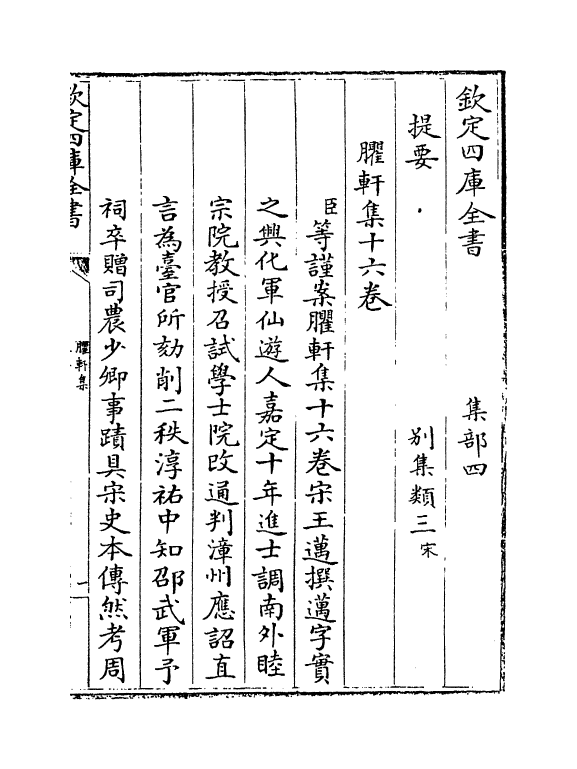 欽定四庫全書　集部四
提要　別集類三宋
臞軒集十六卷
臣等謹案臞軒集十六卷宋王邁撰邁字實
之興化軍仙遊人嘉定十年進士調南外睦
宗院教授召試學士院改通判漳州應詔直
言為臺官所劾削二秩淳祐中知邵武軍予
祠卒贈司農少卿事蹟具宋史本傳然考周
欽定四庫全書
臞軒集
一